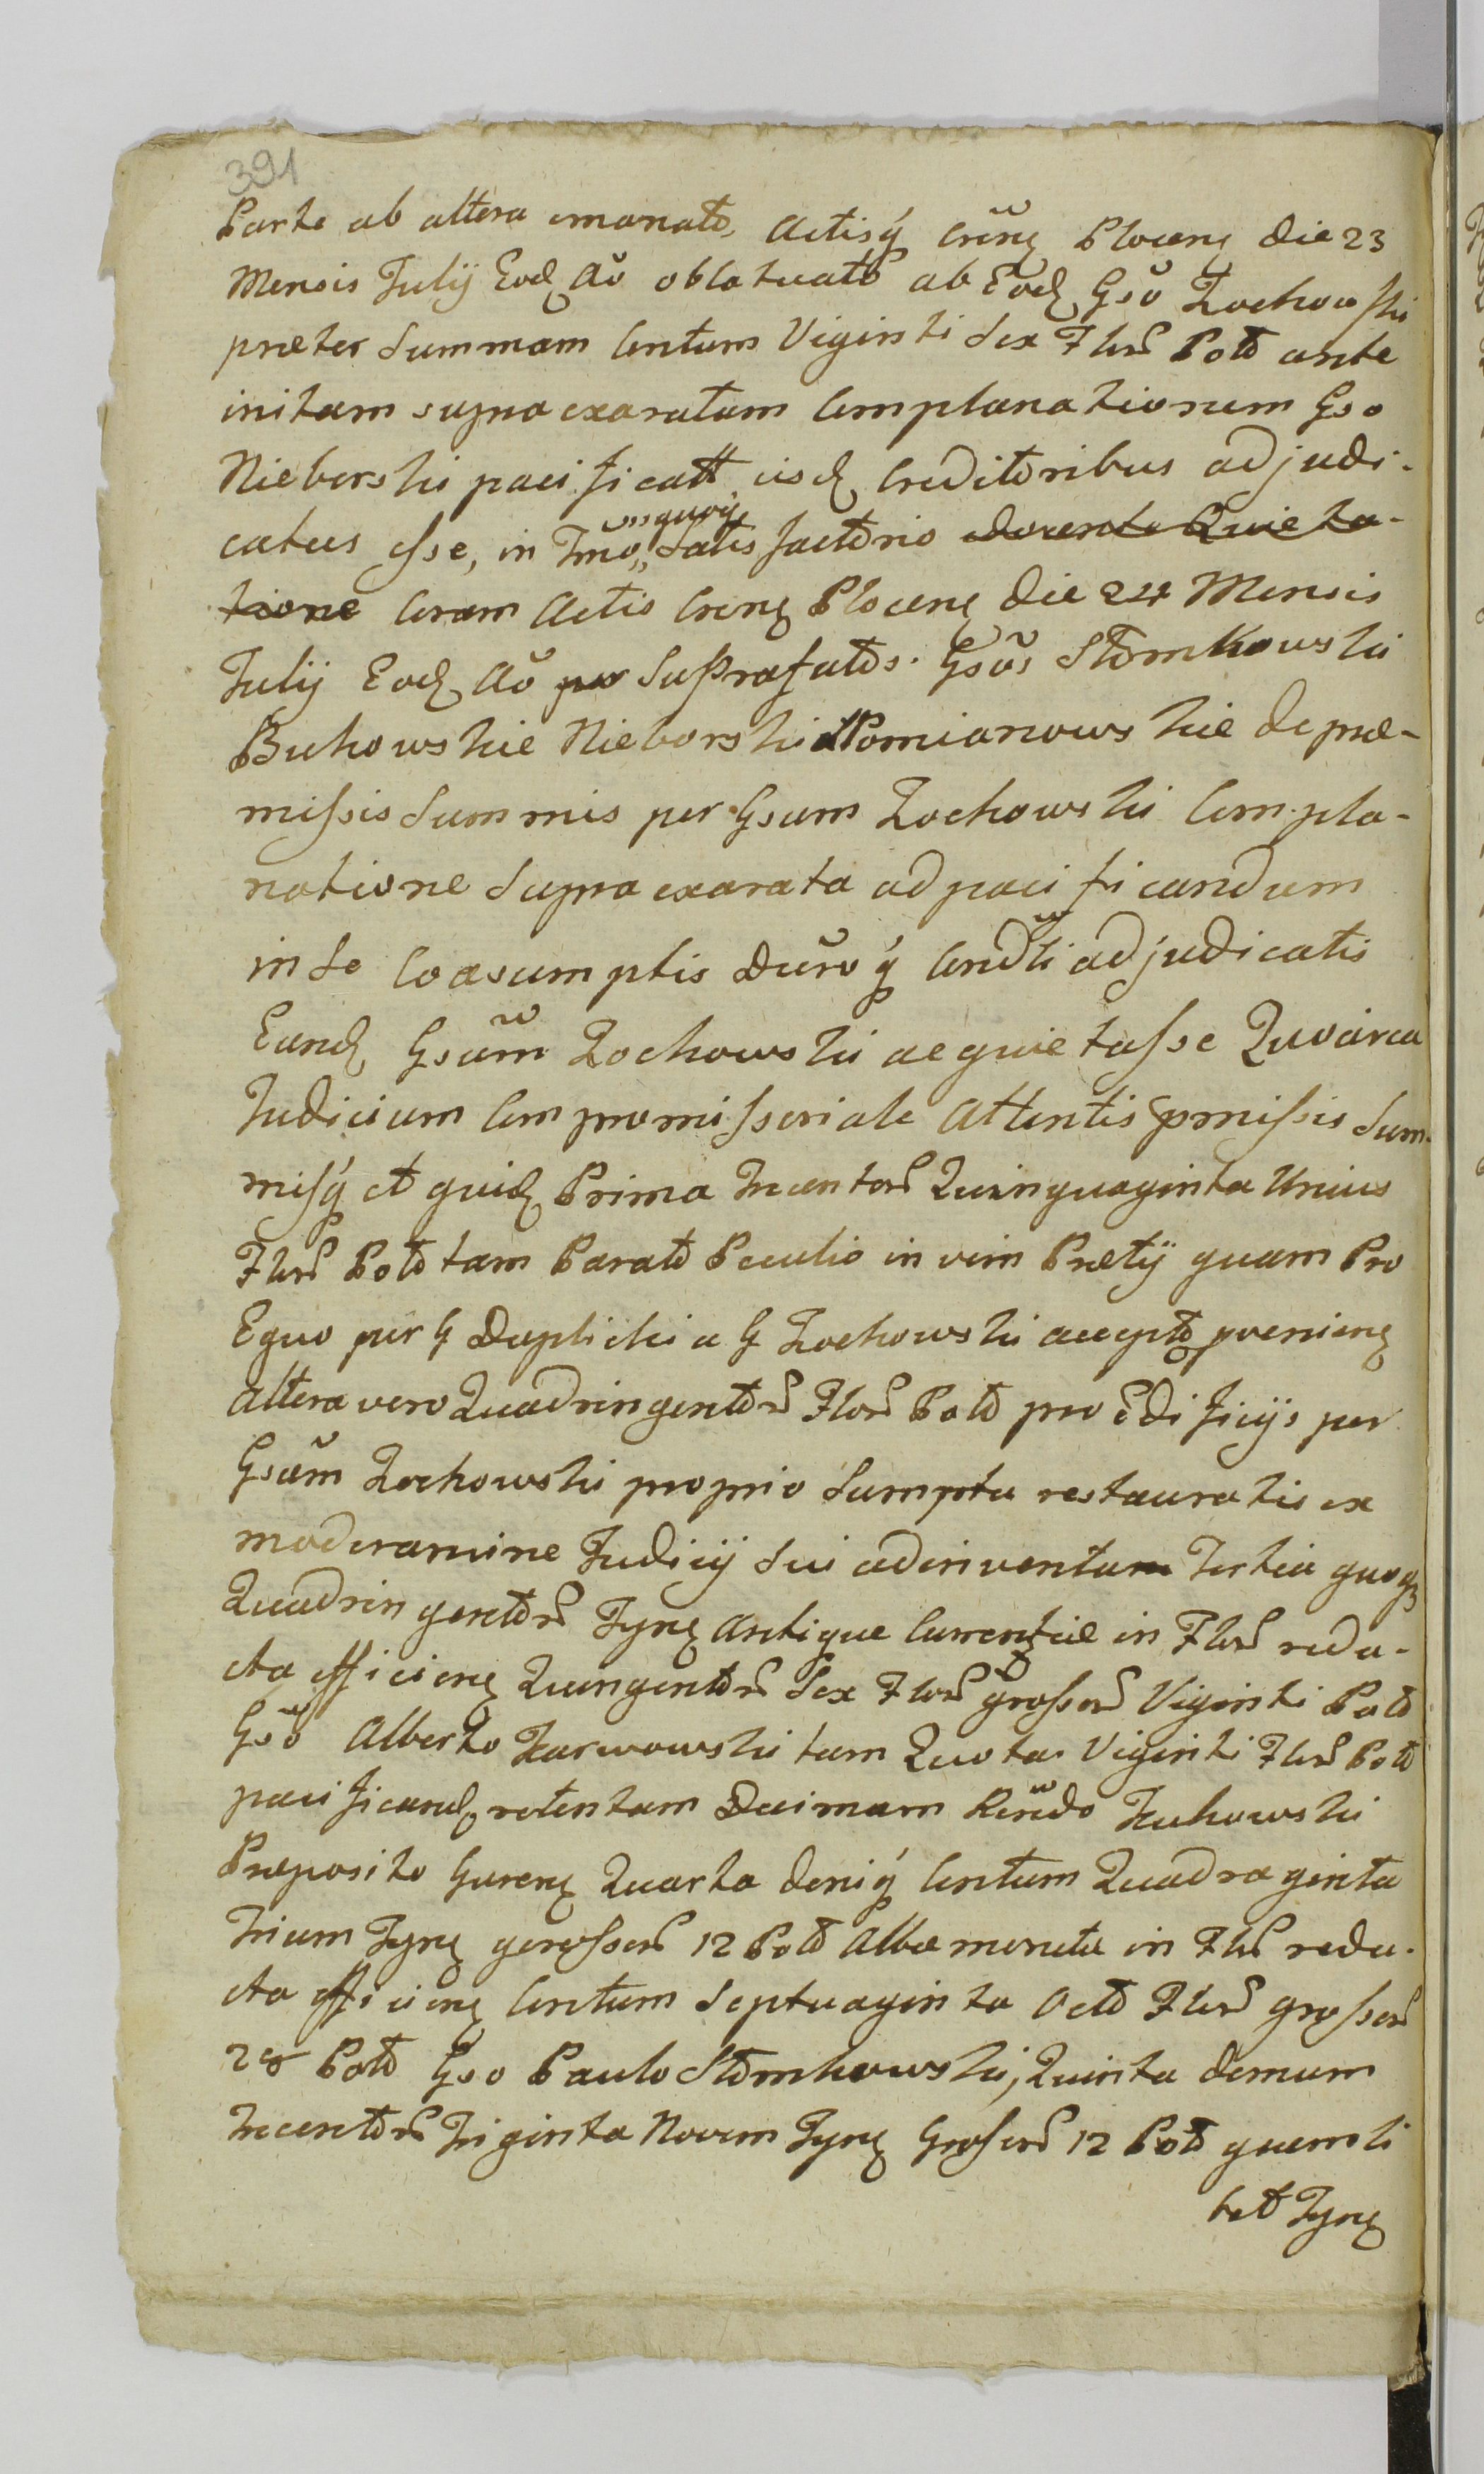 391
Parte ab altera emanato, Actisq́ Cren̄ Plocen̄ die 23
Mensis Julij Eod Ao oblatuato ab Eod Gso Zochowski
præter Summam Centum Viginti Sex Flor Pol ante
initam supra exaratam Complanationem Gso
Nieborski pacificatt, iisd Creditoribus adjudi-
catus esse, in Tmo,, Satisfactorio docente Quieta-
tione Coram Actis Cren Plocen die 24 Mensis
Julij Eod Ao per Suprafatos. Gsos Stomkowski
Bukowskie Nieborski Pomianowskie de præ-
missis Summis per Gsum Zochowski Compla-
natione Supra exarata ad pacificandum
in se Coasumptis Duroq́ Condli adjudicatis
Eund Gsum Zochowski aequietasse Quocirca
Judicium Compromissoriale Attentis præmissis Sum-
misq́ et quid Prima Trecentor Quinquaginta Unius
Flor Pol tam Parato Peculio in vim Pretij quam Pro
Equo per G Duplicki a G Zochowski accepto provenien
Altera vero Quadringentor Flor Pol pro Edificijs per
Gsum Zochowski proprio Sumptu restauratis ex
moderamine Judicij Sui adinventam Tertia quoq
Quadringentor Tyn Antique Currentiæ in Flor redu-
cta efficien Quingentor Sex Flor grossor Viginti Pol
Gso Alberto Karwowski tam Quota Viginti Flor Pol
pacificand retentam Decimam Rendo Zukowski
Præposito Guren Quarta deniq́ Centum Quadraginta
Trium Tyn gerossor 12 Pol Albæ monetæ in Flor redu-
cta efficien Centum Septuaginta Octo Flor grossor
28 Pol Gso Paulo Stomkowski, Quinta demum
Trecentor Triginta Novem Tyn Grossor 12 Pol quemli
bet Tyn